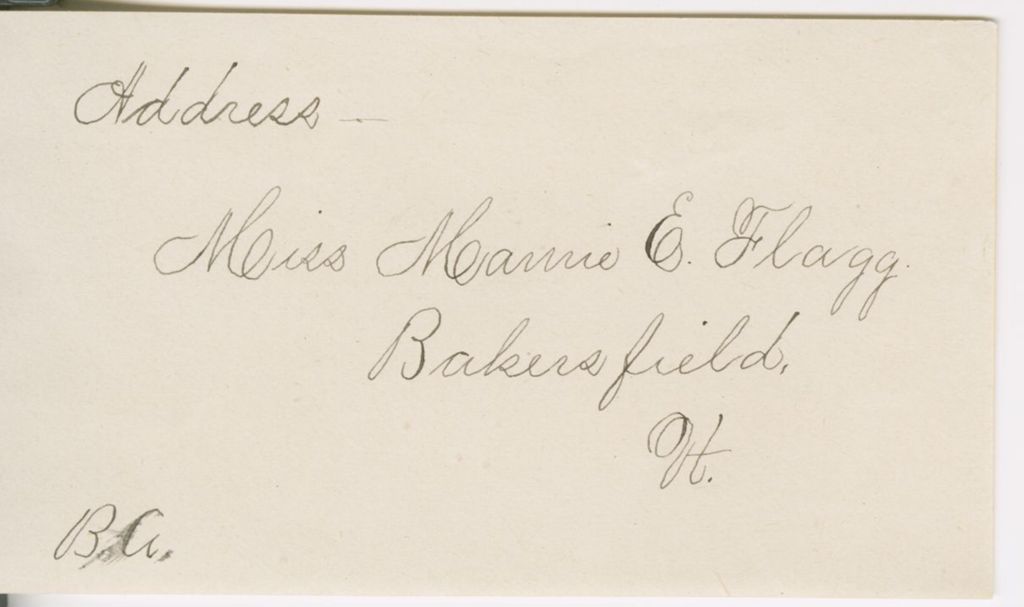 Address —
Miss Mamie E. Flagg.
Bakersfield,
Vt.
B.A.